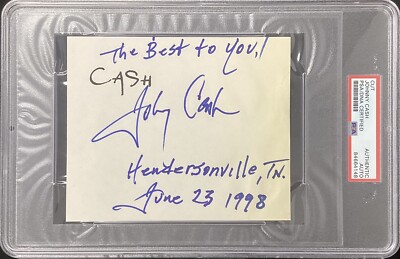 The Best to You,!
CASH
Johnny Cash
Hendersonville, Tn.
June 23 1998
CUT
JOHNNY CASH
PSA/DNA CERTIFIED
AUTHENTIC
AUTO
84664148
PSA